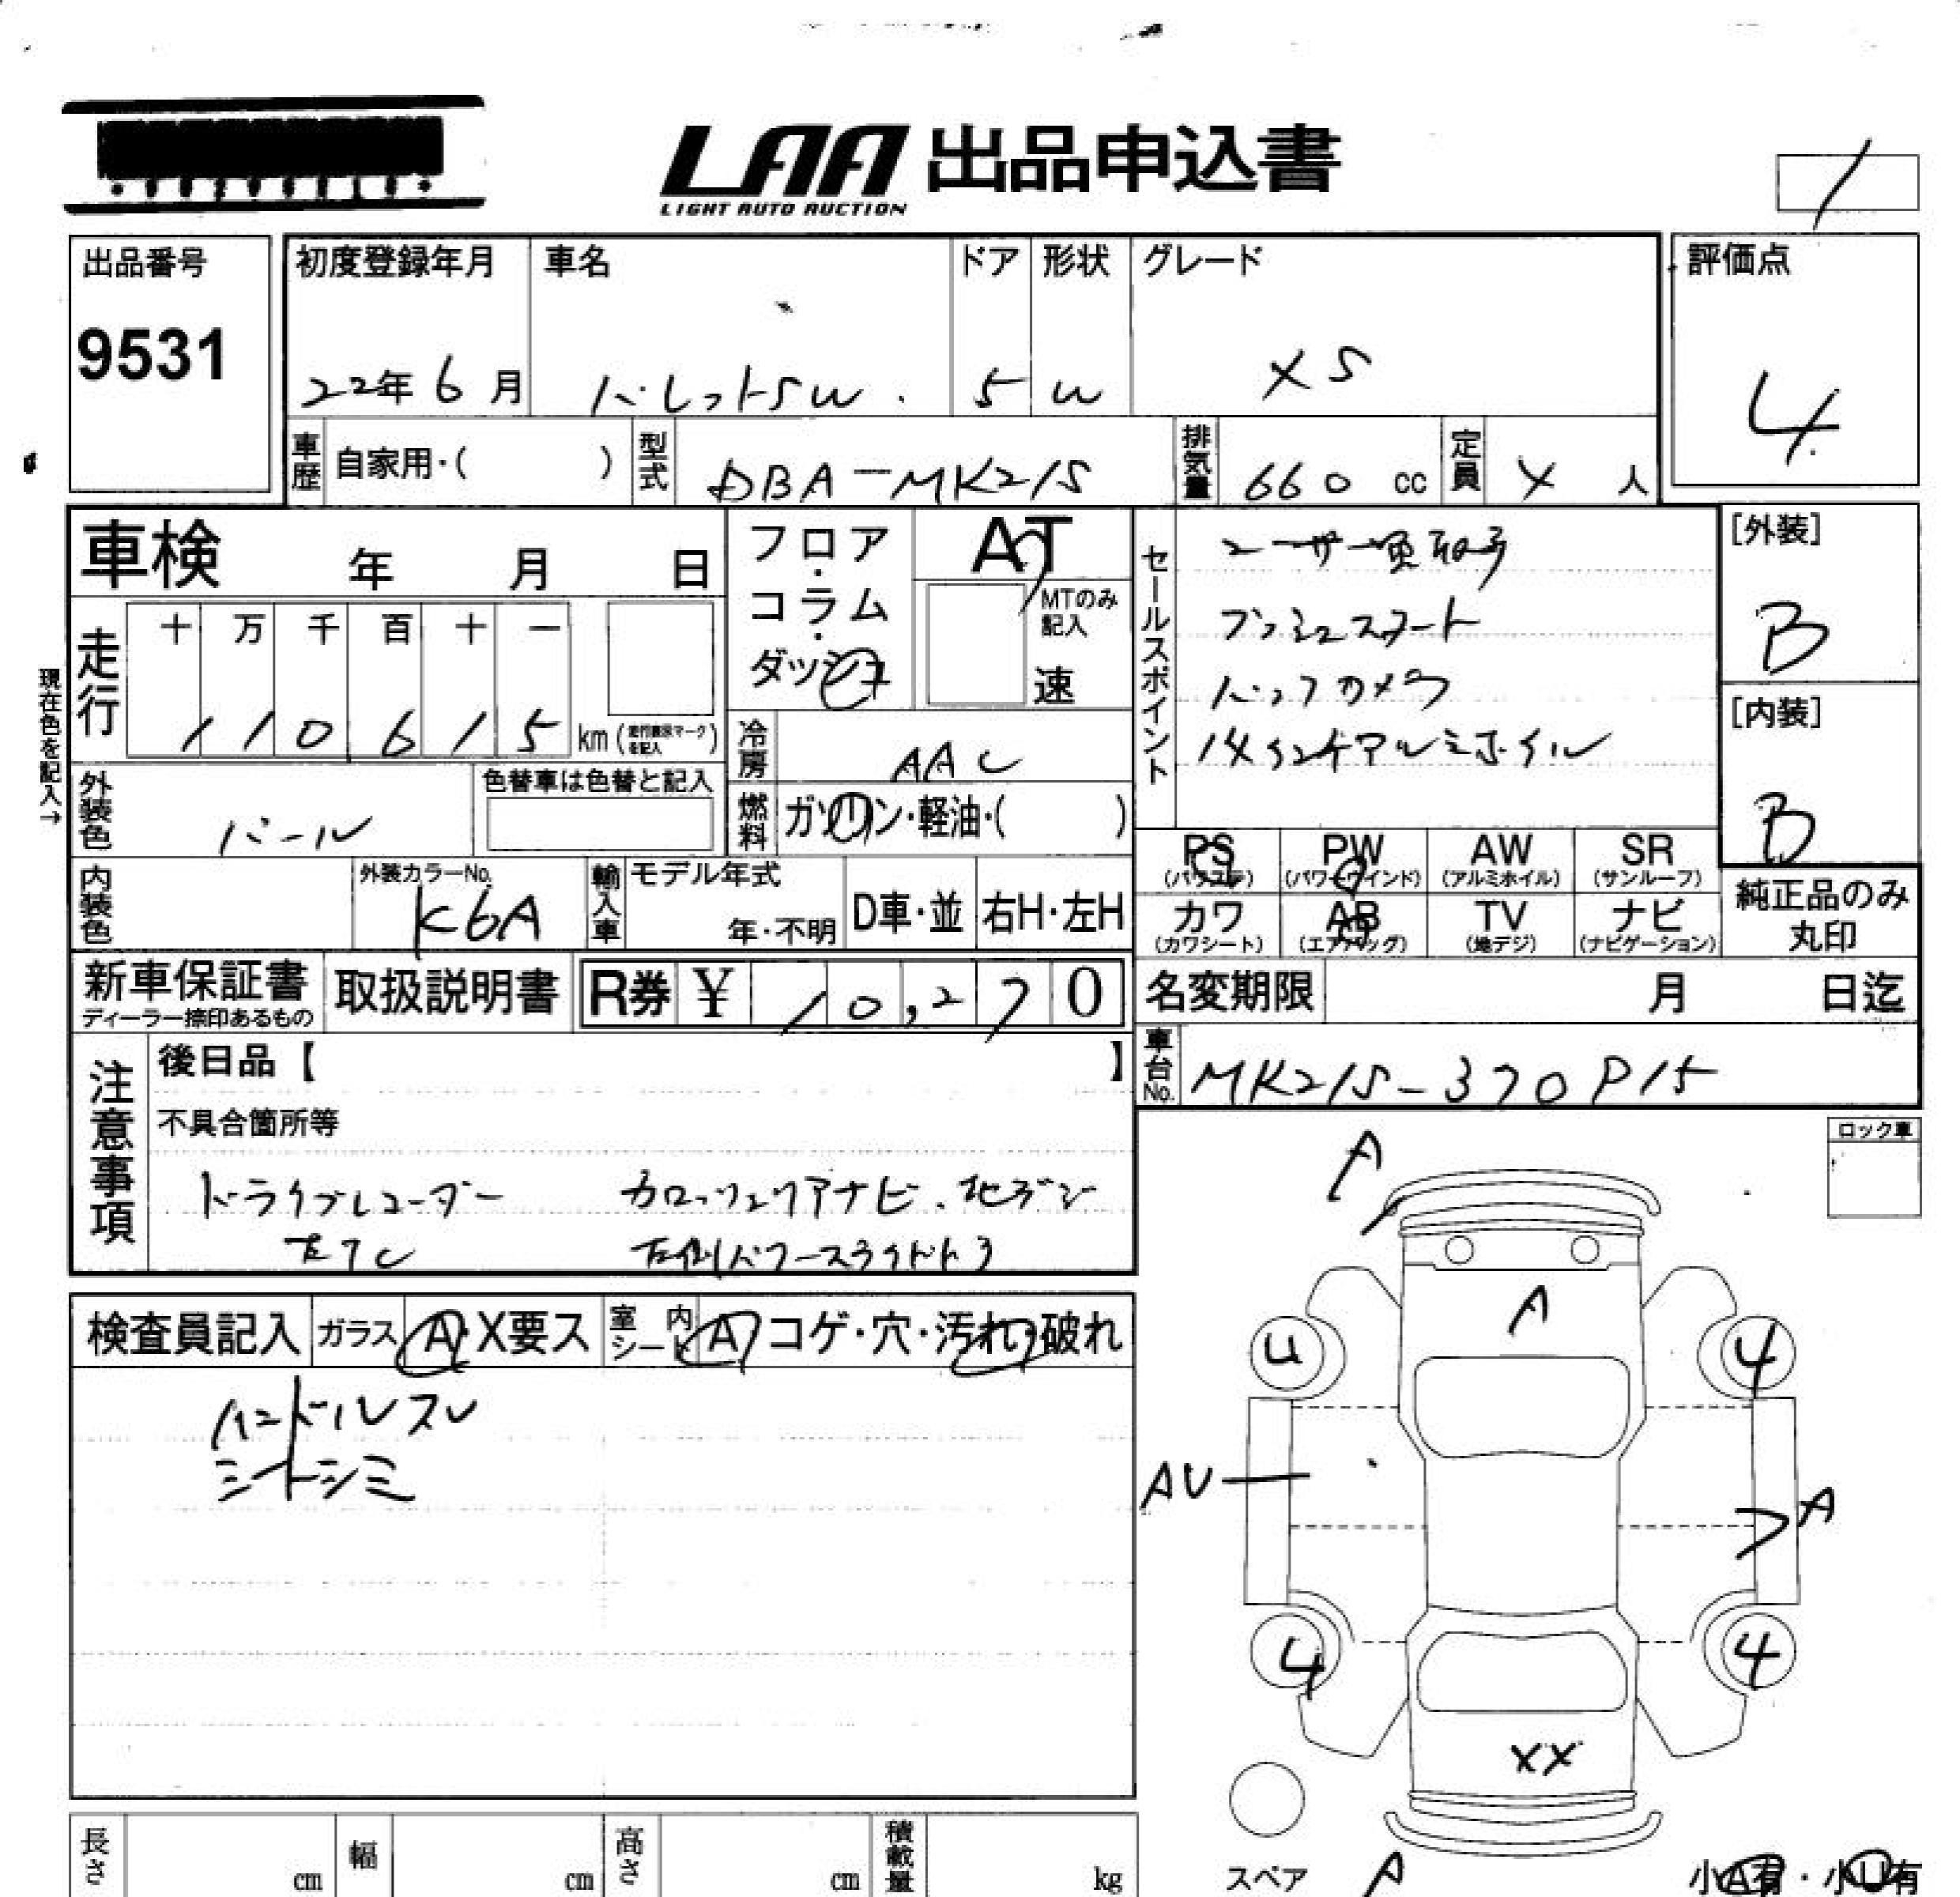 LAA 出品申込書
LIGHT AUTO AUCTION
出品番号
9531
初度登録年月
22年 6月
車名
パレットSW
ドア
5
形状
W
グレード
XS
評価点
4
車歴 自家用・( )
型式 DBA-MK21S
排気量 660 cc
定員 4 人
車検 年 月 日
フロア・コラム・ダッシュ
AT
MTのみ記入
速
走行 十 万 千 百 十 一
1 1 0 6 1 5 km (走行表示マークを記入)
現在色を記入→
冷房 AAC
燃料 ガソリン・軽油・( )
外装色 パール
色替車は色替と記入
内装色
外装カラーNo.
K6A
輸入車
モデル年式
年・不明
D車・並
右H・左H
セールスポイント
ユーザー買取
プッシュスタート
バックカメラ
14インチアルミホイル
[外装]
B
[内装]
B
PS (パワステ) PW (パワーウインド) AW (アルミホイル) SR (サンルーフ)
カワ (カワシート) AB (エアバッグ) TV (地デジ) ナビ (ナビゲーション)
純正品のみ丸印
新車保証書
ディーラー捺印あるもの
取扱説明書
R券 ¥ 10,270
名変期限 月 日迄
車台No. MK21S-370915
注意事項
後日品【 】
不具合箇所等
ドライブレコーダー カロッツェリアナビ.地デジ
左側パワースライドドア
検査員記入
ガラス A・X要ス
室内シート A コゲ・穴・汚れ・破れ
ハンドルスレ
シートシミ
ロック車
A
A
U
4
AU
A
4
4
XX
スペア
A
小A有・小U有
長さ cm
幅 cm
高さ cm
積載量 kg